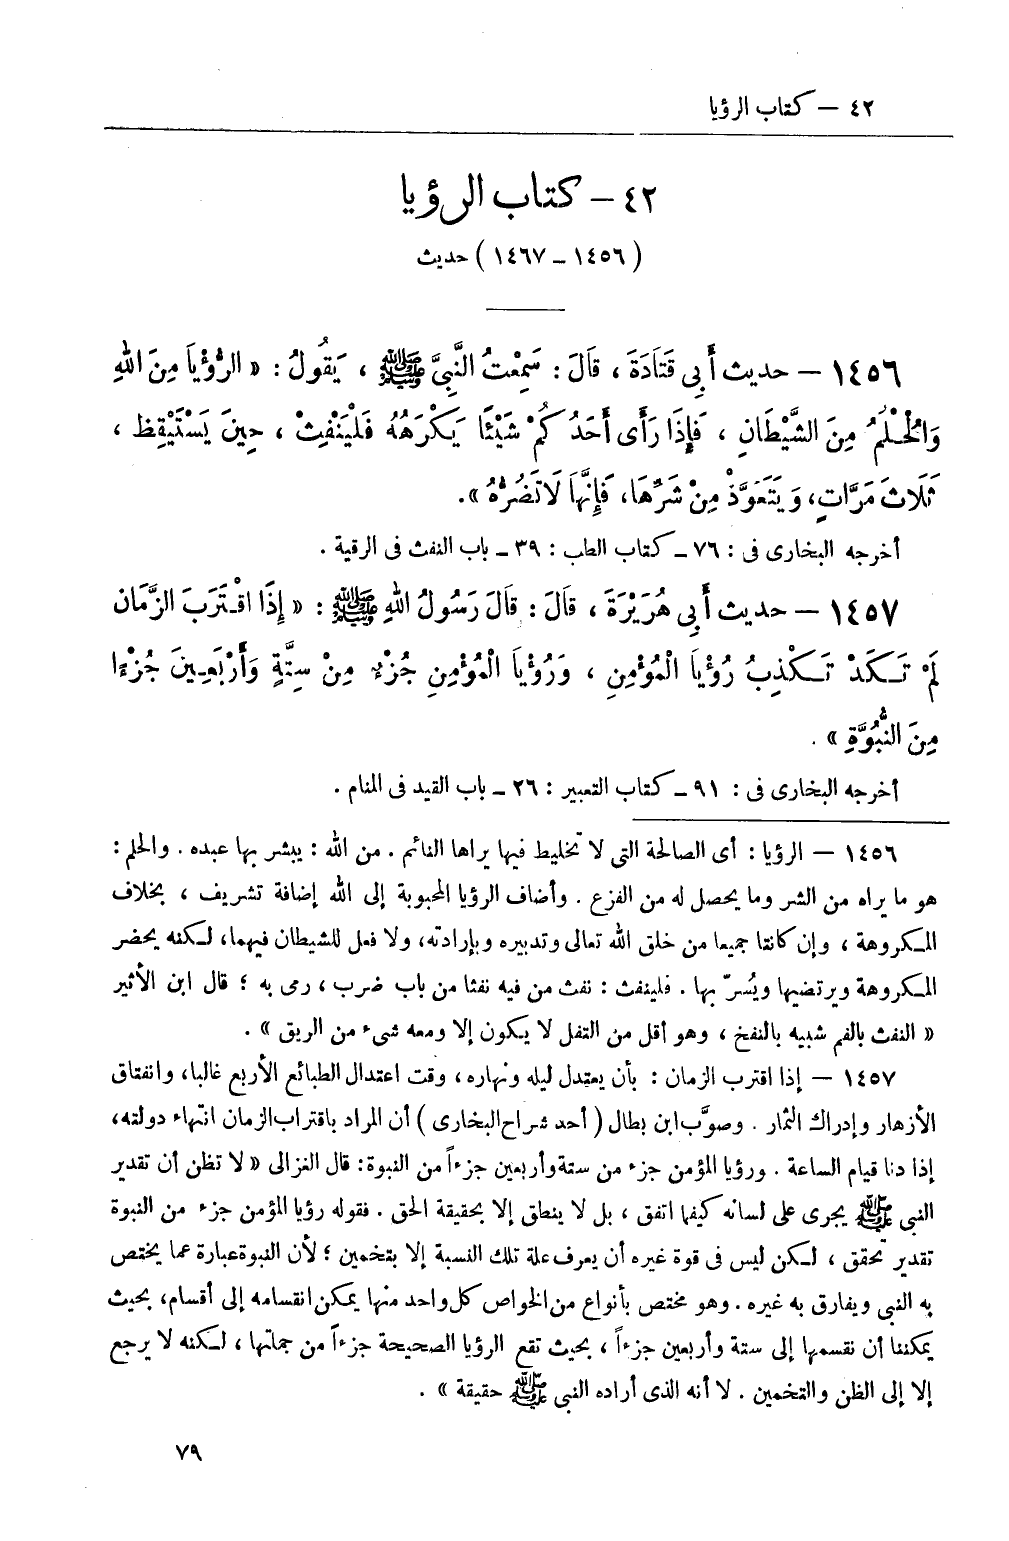 ٤٢ — كتاب الرؤيا
٤٢ — كتاب الرؤيا
( ١٤٥٦ — ١٤٦٧ ) حديث
١٤٥٦ — حديث أَبِى قَتَادَةَ ، قَالَ : سَمِعْتُ النَّبِيَّ ﷺ ، يَقُولُ : « الرُّؤْيَا مِنَ اللهِ
وَالْحُلْمُ مِنَ الشَّيْطَانِ ، فَإِذَا رَأَى أَحَدُكُمْ شَيْئًا يَكْرَهُهُ فَلْيَنْفِثْ ، حِينَ يَسْتَيْقِظ ،
ثَلَاثَ مَرَّاتٍ، وَيَتَعَوَّذْ مِنْ شَرِّهَا، فَإِنَّهَا لَا تَضُرُّهُ ».
أخرجه البخارى فى : ٧٦ — كتاب الطب : ٣٩ — باب النفث فى الرقية .
١٤٥٧ — حديث أَبِى هُرَيْرَةَ ، قَالَ : قَالَ رَسُولُ اللهِ ﷺ : « إِذَا اقْتَرَبَ الزَّمَان
لَمْ تَكَدْ تَكْذِبُ رُؤْيَا الْمُؤْمِنِ ، وَرُؤْيَا الْمُؤْمِنِ جُزْءٍ مِنْ سِتَّةٍ وَأَرْبَعِينَ جُزْءًا
مِنَ النُّبُوَّةِ » .
أخرجه البخارى فى : ٩١ — كتاب التعبير : ٢٦ — باب القيد فى المنام .
١٤٥٦ — الرؤيا : أى الصالحة التى لا تخليط فيها يراها النائم . من الله : يبشر بها عبده . والحلم :
هو ما يراه من الشر وما يحصل له من الفزع . وأضاف الرؤيا المحبوبة إلى الله إضافة تشريف ، بخلاف
المكروهة ، وإن كانتا جميعا من خلق الله تعالى وتدبيره وبإرادته، ولا فعل للشيطان فيهما، لكنه يحضر
المكروهة ويرتضيها ويُسرّ بها . فلينفث : نفث من فيه نفثا من باب ضرب ، رمى به ؛ قال ابن الأثير
« النفث بالفم شبيه بالنفخ ، وهو أقل من التفل لا يكون إلا ومعه شىء من الريق » .
١٤٥٧ — إذا اقترب الزمان : بأن يعتدل ليله ونهاره ، وقت اعتدال الطبائع الأربع غالبا، وانفتاق
الأزهار وإدراك الثمار . وصوَّب ابن بطال ( أحد شراح البخارى ) أن المراد باقتراب الزمان انتهاء دولته،
إذا دنا قيام الساعة . ورؤيا المؤمن جزء من ستة وأربعين جزءاً من النبوة: قال الغزالى « لا تظن أن تقدير
النبى ﷺ يجرى على لسانه كيفما اتفق ، بل لا ينطق إلا بحقيقة الحق . فقوله رؤيا المؤمن جزء من النبوة
تقدير تحقق ، لكن ليس فى قوة غيره أن يعرف علة تلك النسبة إلا بتخمين ؛ لأن النبوة عبارة عما يختص
به النبى ويفارق به غيره . وهو مختص بأنواع من الخواص كل واحد منها يمكن انقسامه إلى أقسام، بحيث
يمكننا أن نقسمها إلى ستة وأربعين جزءاً ، بحيث تقع الرؤيا الصحيحة جزءاً من جملتها ، لكنه لا يرجع
إلا إلى الظن والتخمين . لا أنه الذى أراده النبى ﷺ حقيقة » .
٧٩